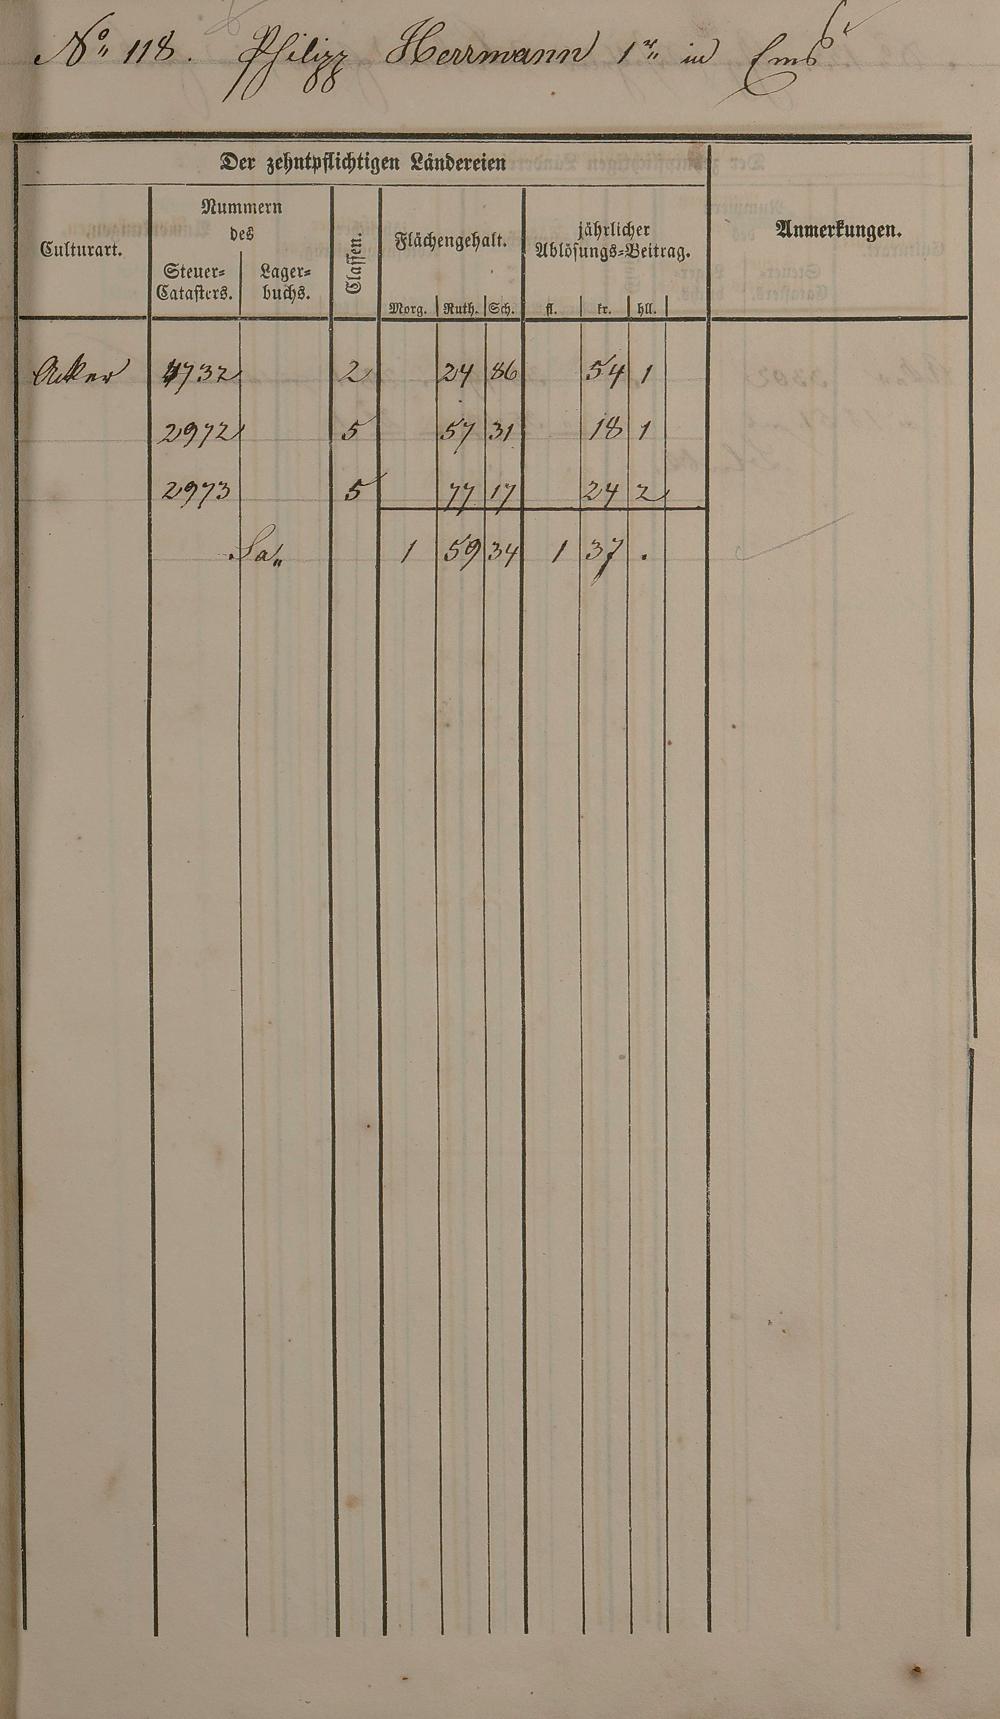 No. 118. Philipp Herrmann 1r in Ems
Der zehntpflichtigen Ländereien
Culturart.
Nummern
des
Steuer=
Catasters.
Lager=
buchs.
Classen.
Flächengehalt.
Morg. Ruth. Sch.
jährlicher
Ablösungs=Beitrag.
fl. kr. hll.
Anmerkungen.
Acker 1732 2 24 86 54 1
2972 5 57 31 18 1
2973 5 77 17 24 2
Sa. 1 59 34 1 37 .